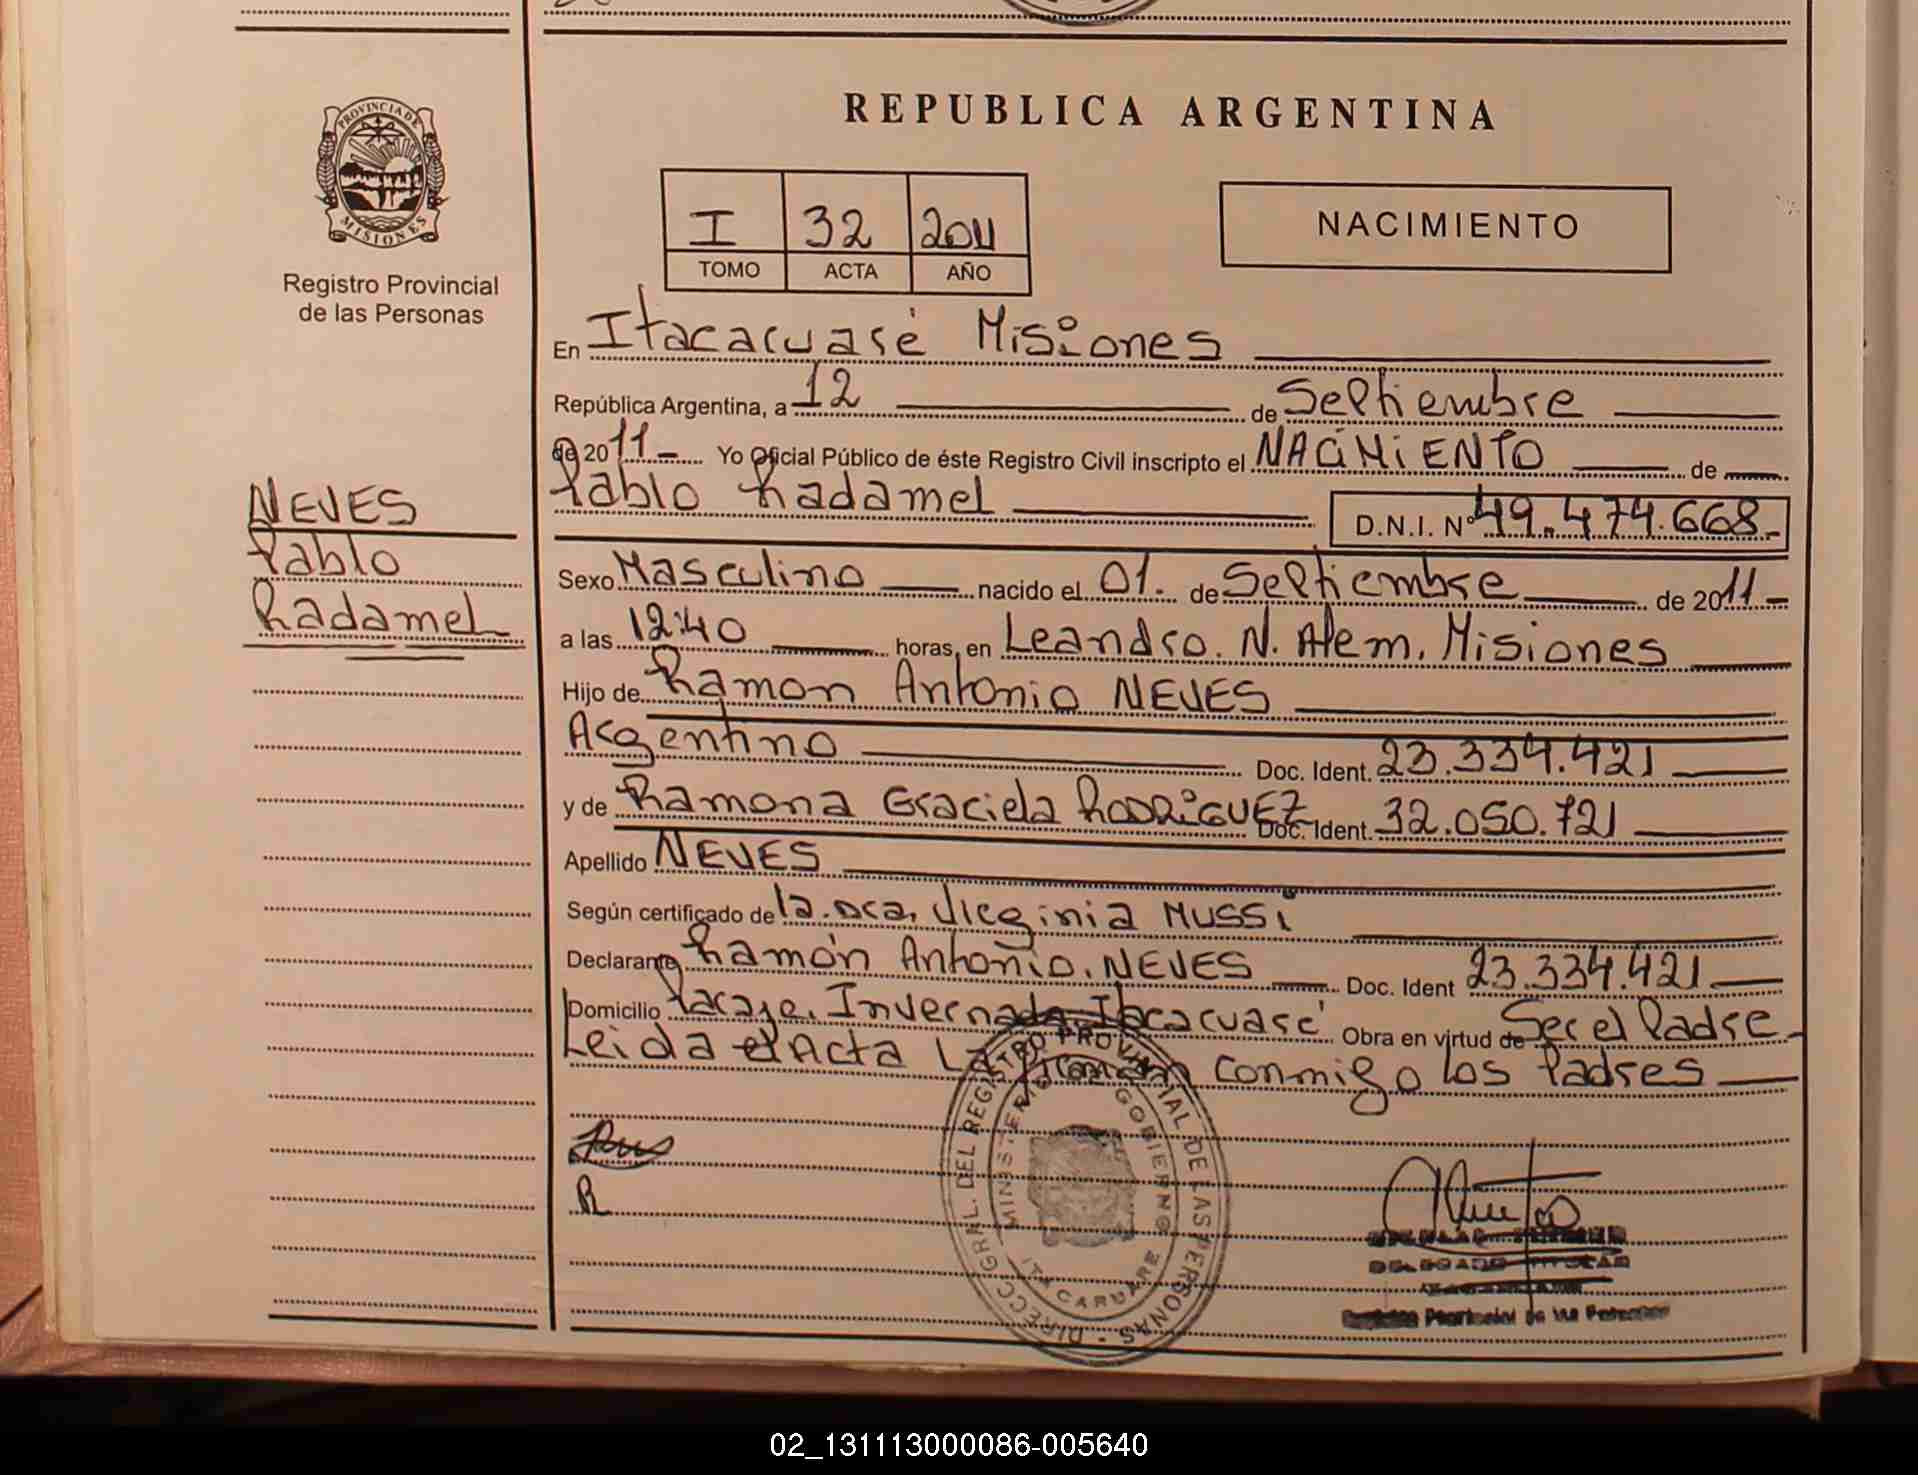 REPUBLICA ARGENTINA
PROVINCIA DE
MISIONES
Registro Provincial
de las Personas
I 32 2011
TOMO ACTA AÑO
NACIMIENTO
En Itacaruaré Misiones
República Argentina, a 12 de Septiembre
de 2011 Yo Oficial Público de éste Registro Civil inscripto el NACIMIENTO de
Pablo Radamel D.N.I. Nº 49.474.668
NEVES
Pablo
Radamel
Sexo Masculino nacido el 01. de Septiembre de 2011
a las 12:40 horas, en Leandro. N. Alem, Misiones
Hijo de Ramon Antonio NEVES
Argentino Doc. Ident. 23.334.421
y de Ramona Graciela RODRiGUEZ Doc. Ident. 32.050.721
Apellido NEVES
Según certificado de la. Dra. Virginia MUSSi
Declarante Ramón Antonio. NEVES Doc. Ident 23.334.421
Domicilio Paraje. Invernada Itacaruaré Obra en virtud de Ser el Padre
Leida el Acta La firman conmigo los Padres
DIRECC. GRAL. DEL REGISTRO PROVINCIAL DE LAS PERSONAS
MINISTERIO GOBIERNO
ITA CARUARE
R
Provincial de las Personas
02_131113000086-005640